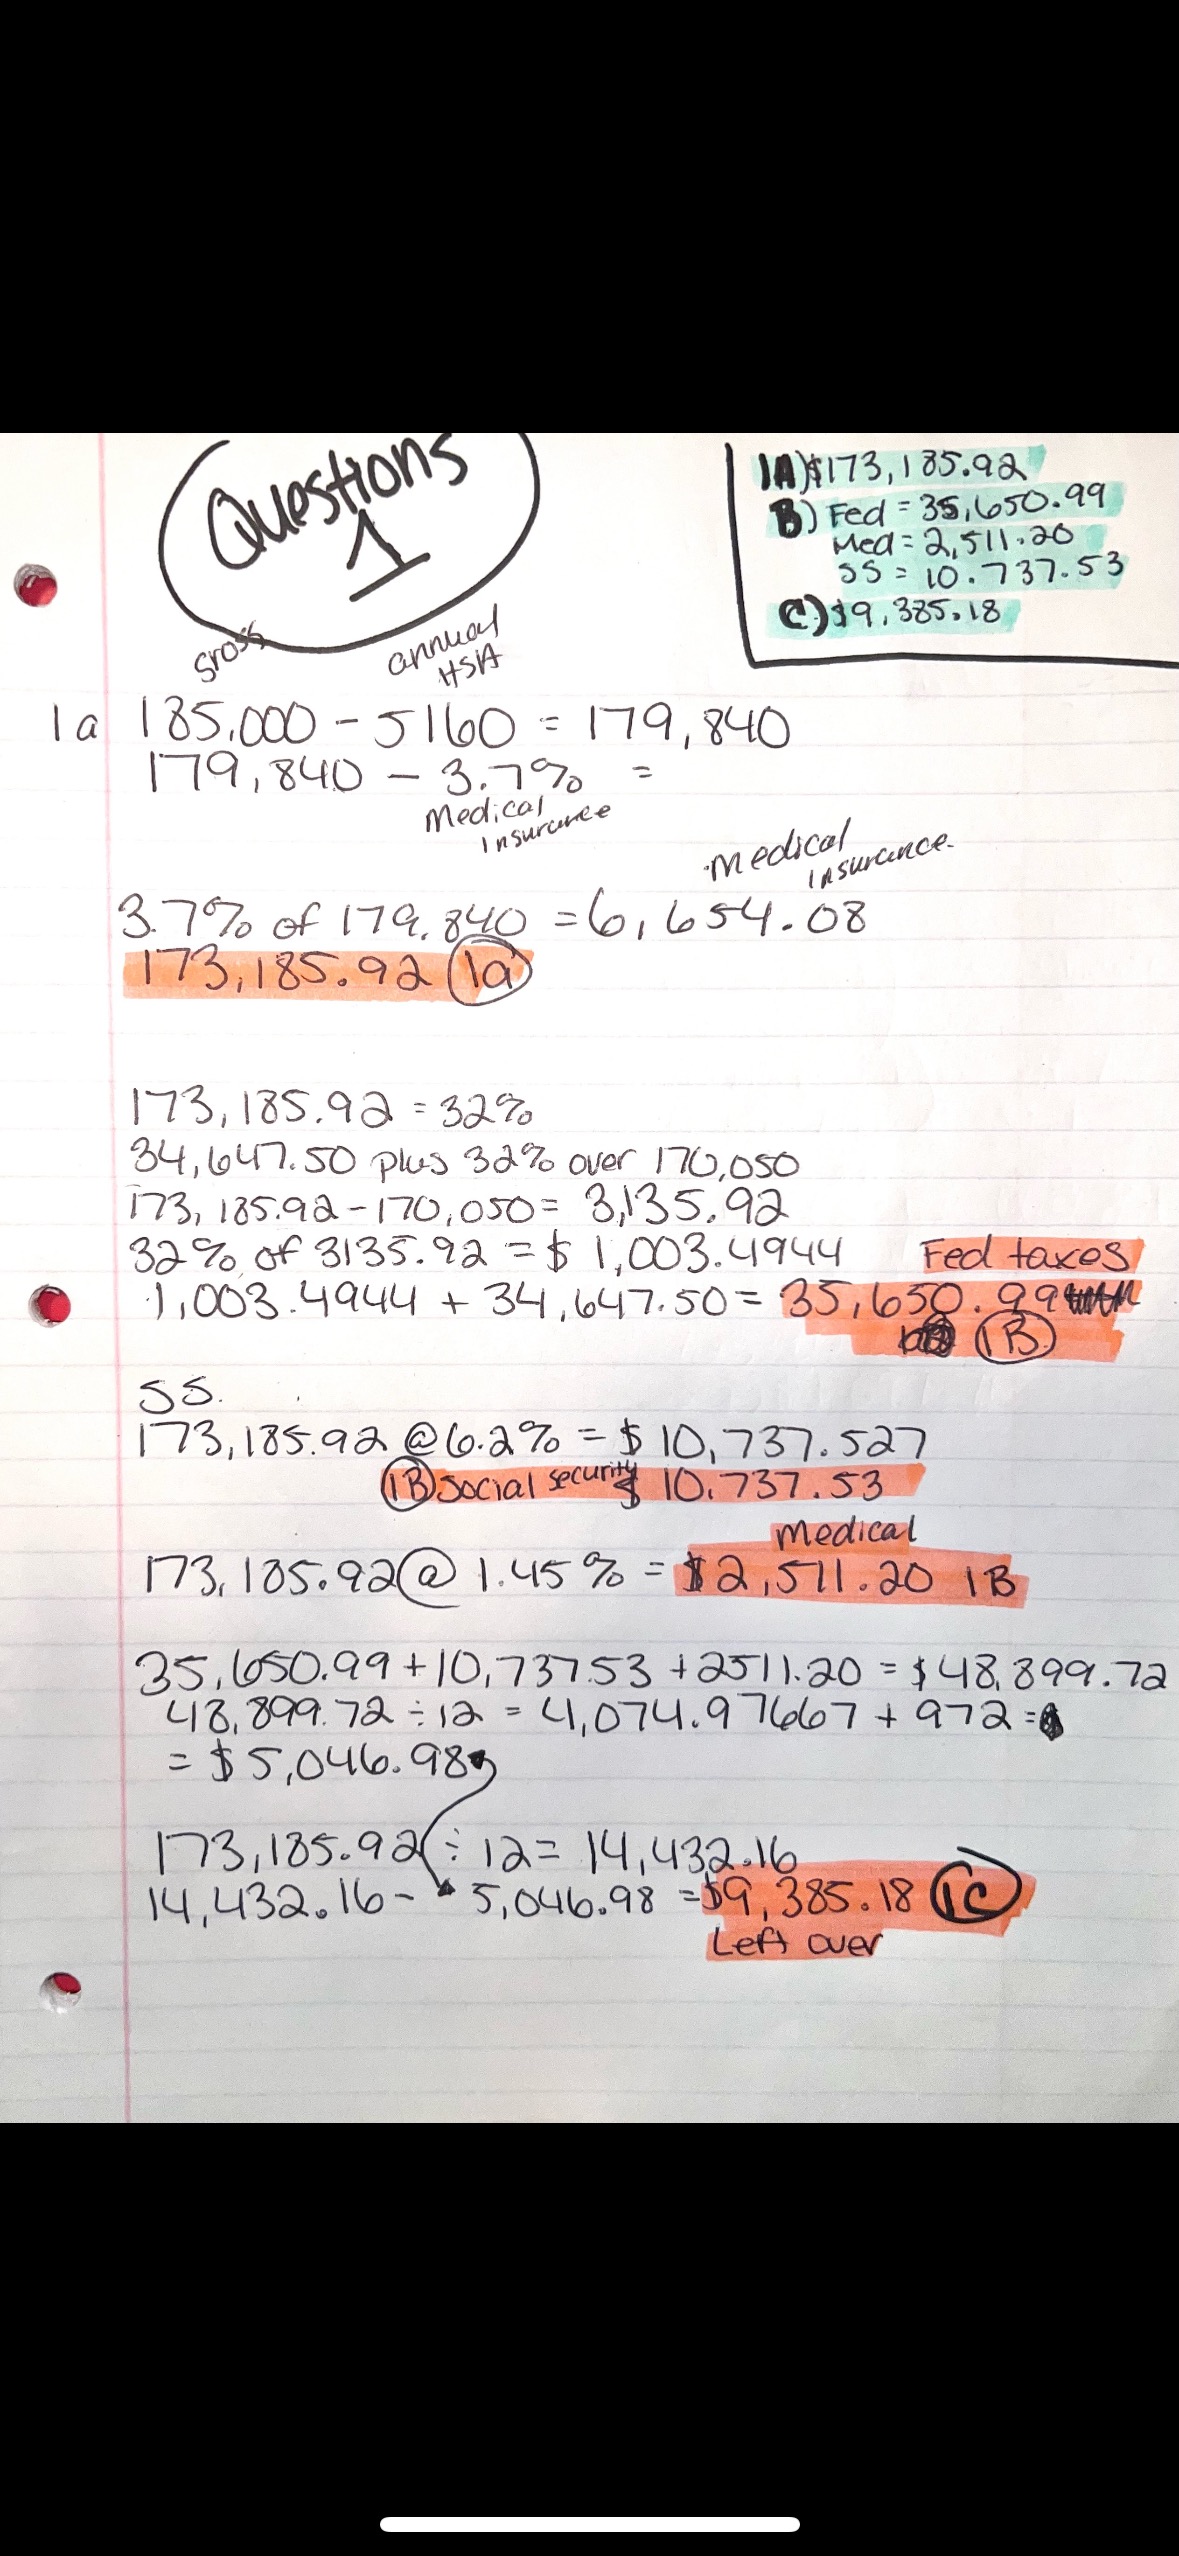 Questions
1
1A) $173,185.92
B) Fed = 35,650.99
Med = 2,511.20
SS = 10.737.53
C.) $9,385.18
gross
annual
HSA
1a 185,000 - 5160 = 179,840
179,840 - 3.7% =
Medical
Insurance
Medical
Insurance.
3.7% of 179,840 = 6,654.08
173,185.92 1a
173,185.92 = 32%
34,647.50 plus 32% over 170,050
173,185.92 - 170,050 = 3,135.92
32% of 3135.92 = $ 1,003.4944 Fed taxes
1,003.4944 + 34,647.50 = 35,650.99
1B.
SS.
173,185.92 @ 6.2% = $ 10,737.527
1B Social security $ 10,737.53
Medical
173,185.92 @ 1.45% = $2,511.20 1B
35,650.99 + 10,737.53 + 2511.20 = $48,899.72
48,899.72 ÷ 12 = 4,074.97667 + 972 =
= $5,046.98
173,185.92 ÷ 12 = 14,432.16
14,432.16 - 5,046.98 = $9,385.18 1C
Left over